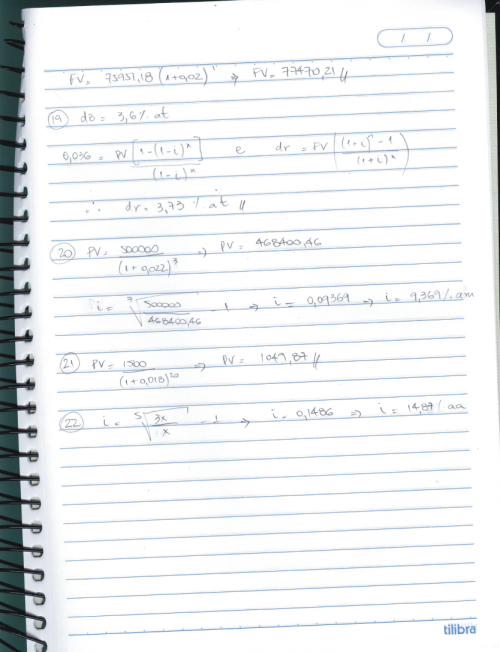 / /
FV = 75951,18 (1+0,02)¹ => FV = 77470,21 //
19 dB = 3,6% at
0,036 = PV [1-(1-i)ⁿ] / (1-i)ⁿ e dr = FV ((1+i)ⁿ - 1 / (1+i)ⁿ)
∴ dr = 3,73 % at //
20 PV = 500000 / (1+0,022)³ => PV = 468400,46
i = ⁷√500000 / 468400,46 - 1 => i = 0,09369 => i = 9,369% am
21 PV = 1500 / (1+0,018)²⁰ => PV = 1049,87 //
22 i = ⁵√3x / x - 1 => i = 0,1486 => i = 14,87% aa
tilibra